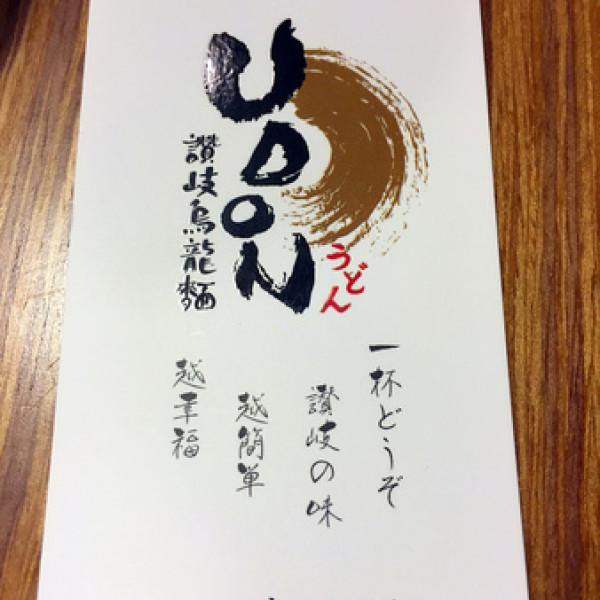 UDON
うどん
讃岐烏龍麵
一杯どうぞ
讃岐の味
越簡単
越幸福